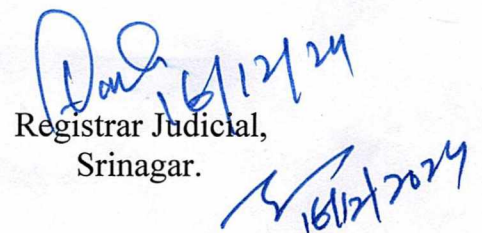 16/12/24
Registrar Judicial,
Srinagar.
16/12/2024